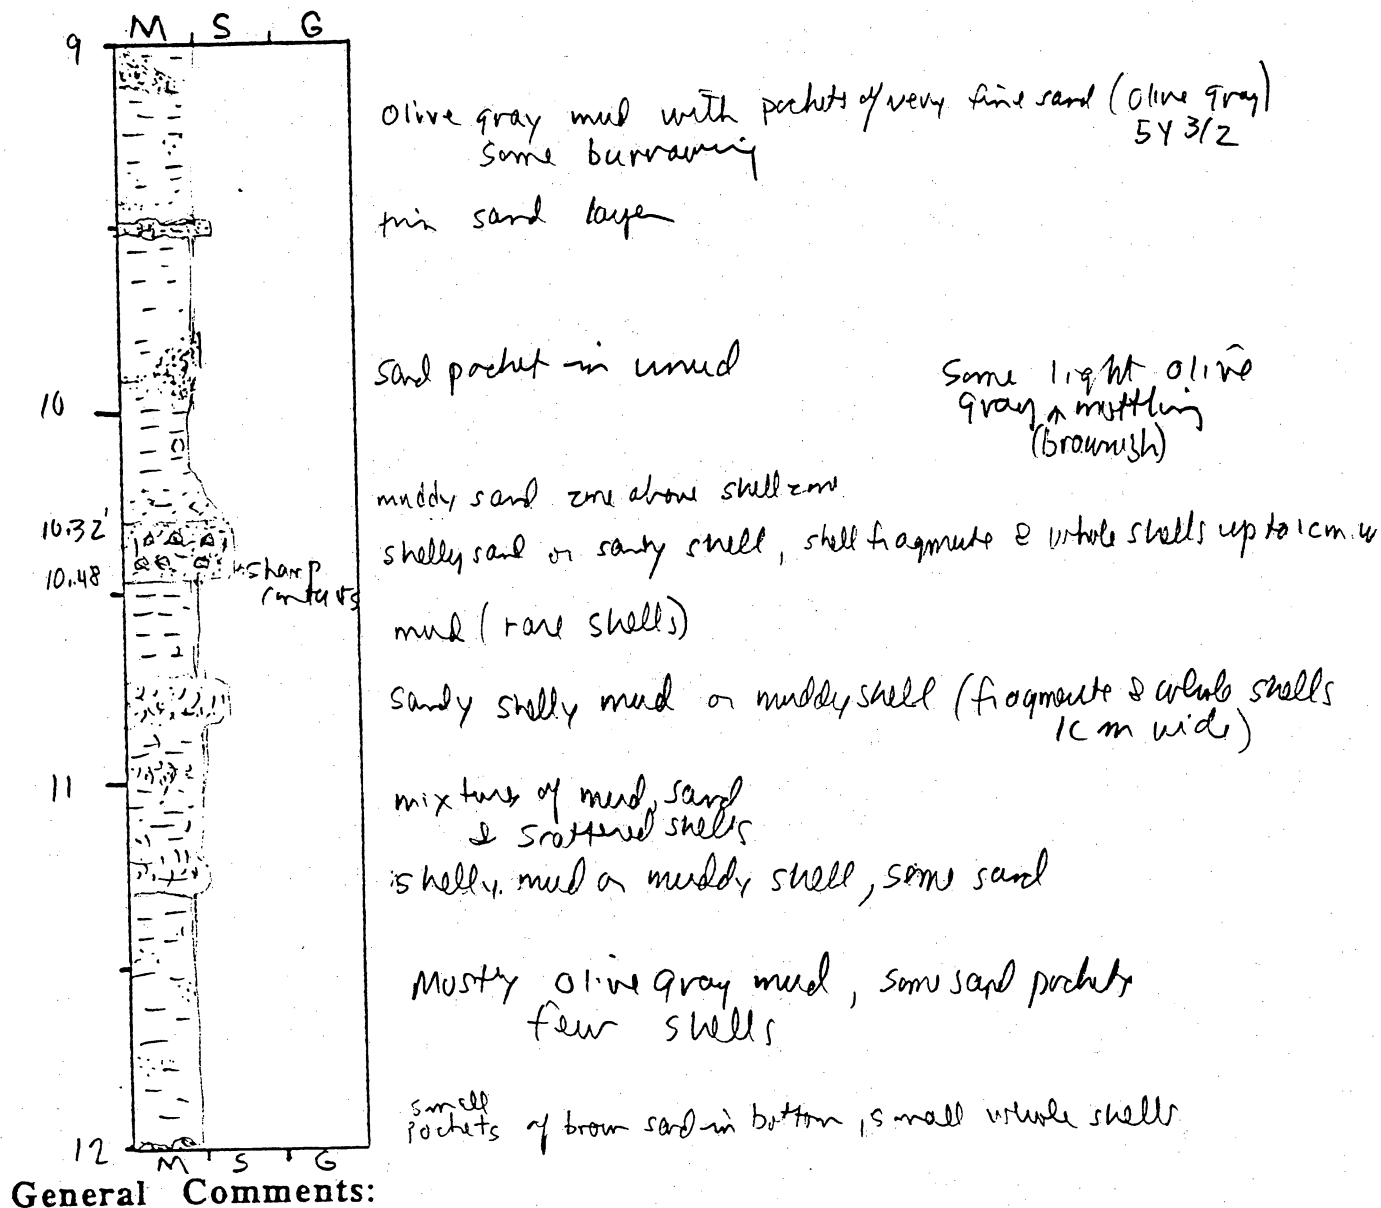 M S G
9
Olive gray mud with pockets of very fine sand (Olive gray)
5Y 3/2
Some burrowing
thin sand layer
sand pocket in mud
Some light olive
gray ^ mottling
(brownish)
10
muddy sand zone above shell zone
10.32'
shelly sand or sandy shell, shell fragments & whole shells up to 1 cm. w
10.48
sharp
contacts
mud (rare shells)
sandy shelly mud or muddy shell (fragments & whole shells
1cm wide)
11
mixture of mud, sand
& scattered shells
shelly mud or muddy shell, some sand
Mostly Olive gray mud, some sand pockets
few shells
small
pockets of brown sand in bottom, small whole shells
12
M S G
General Comments: